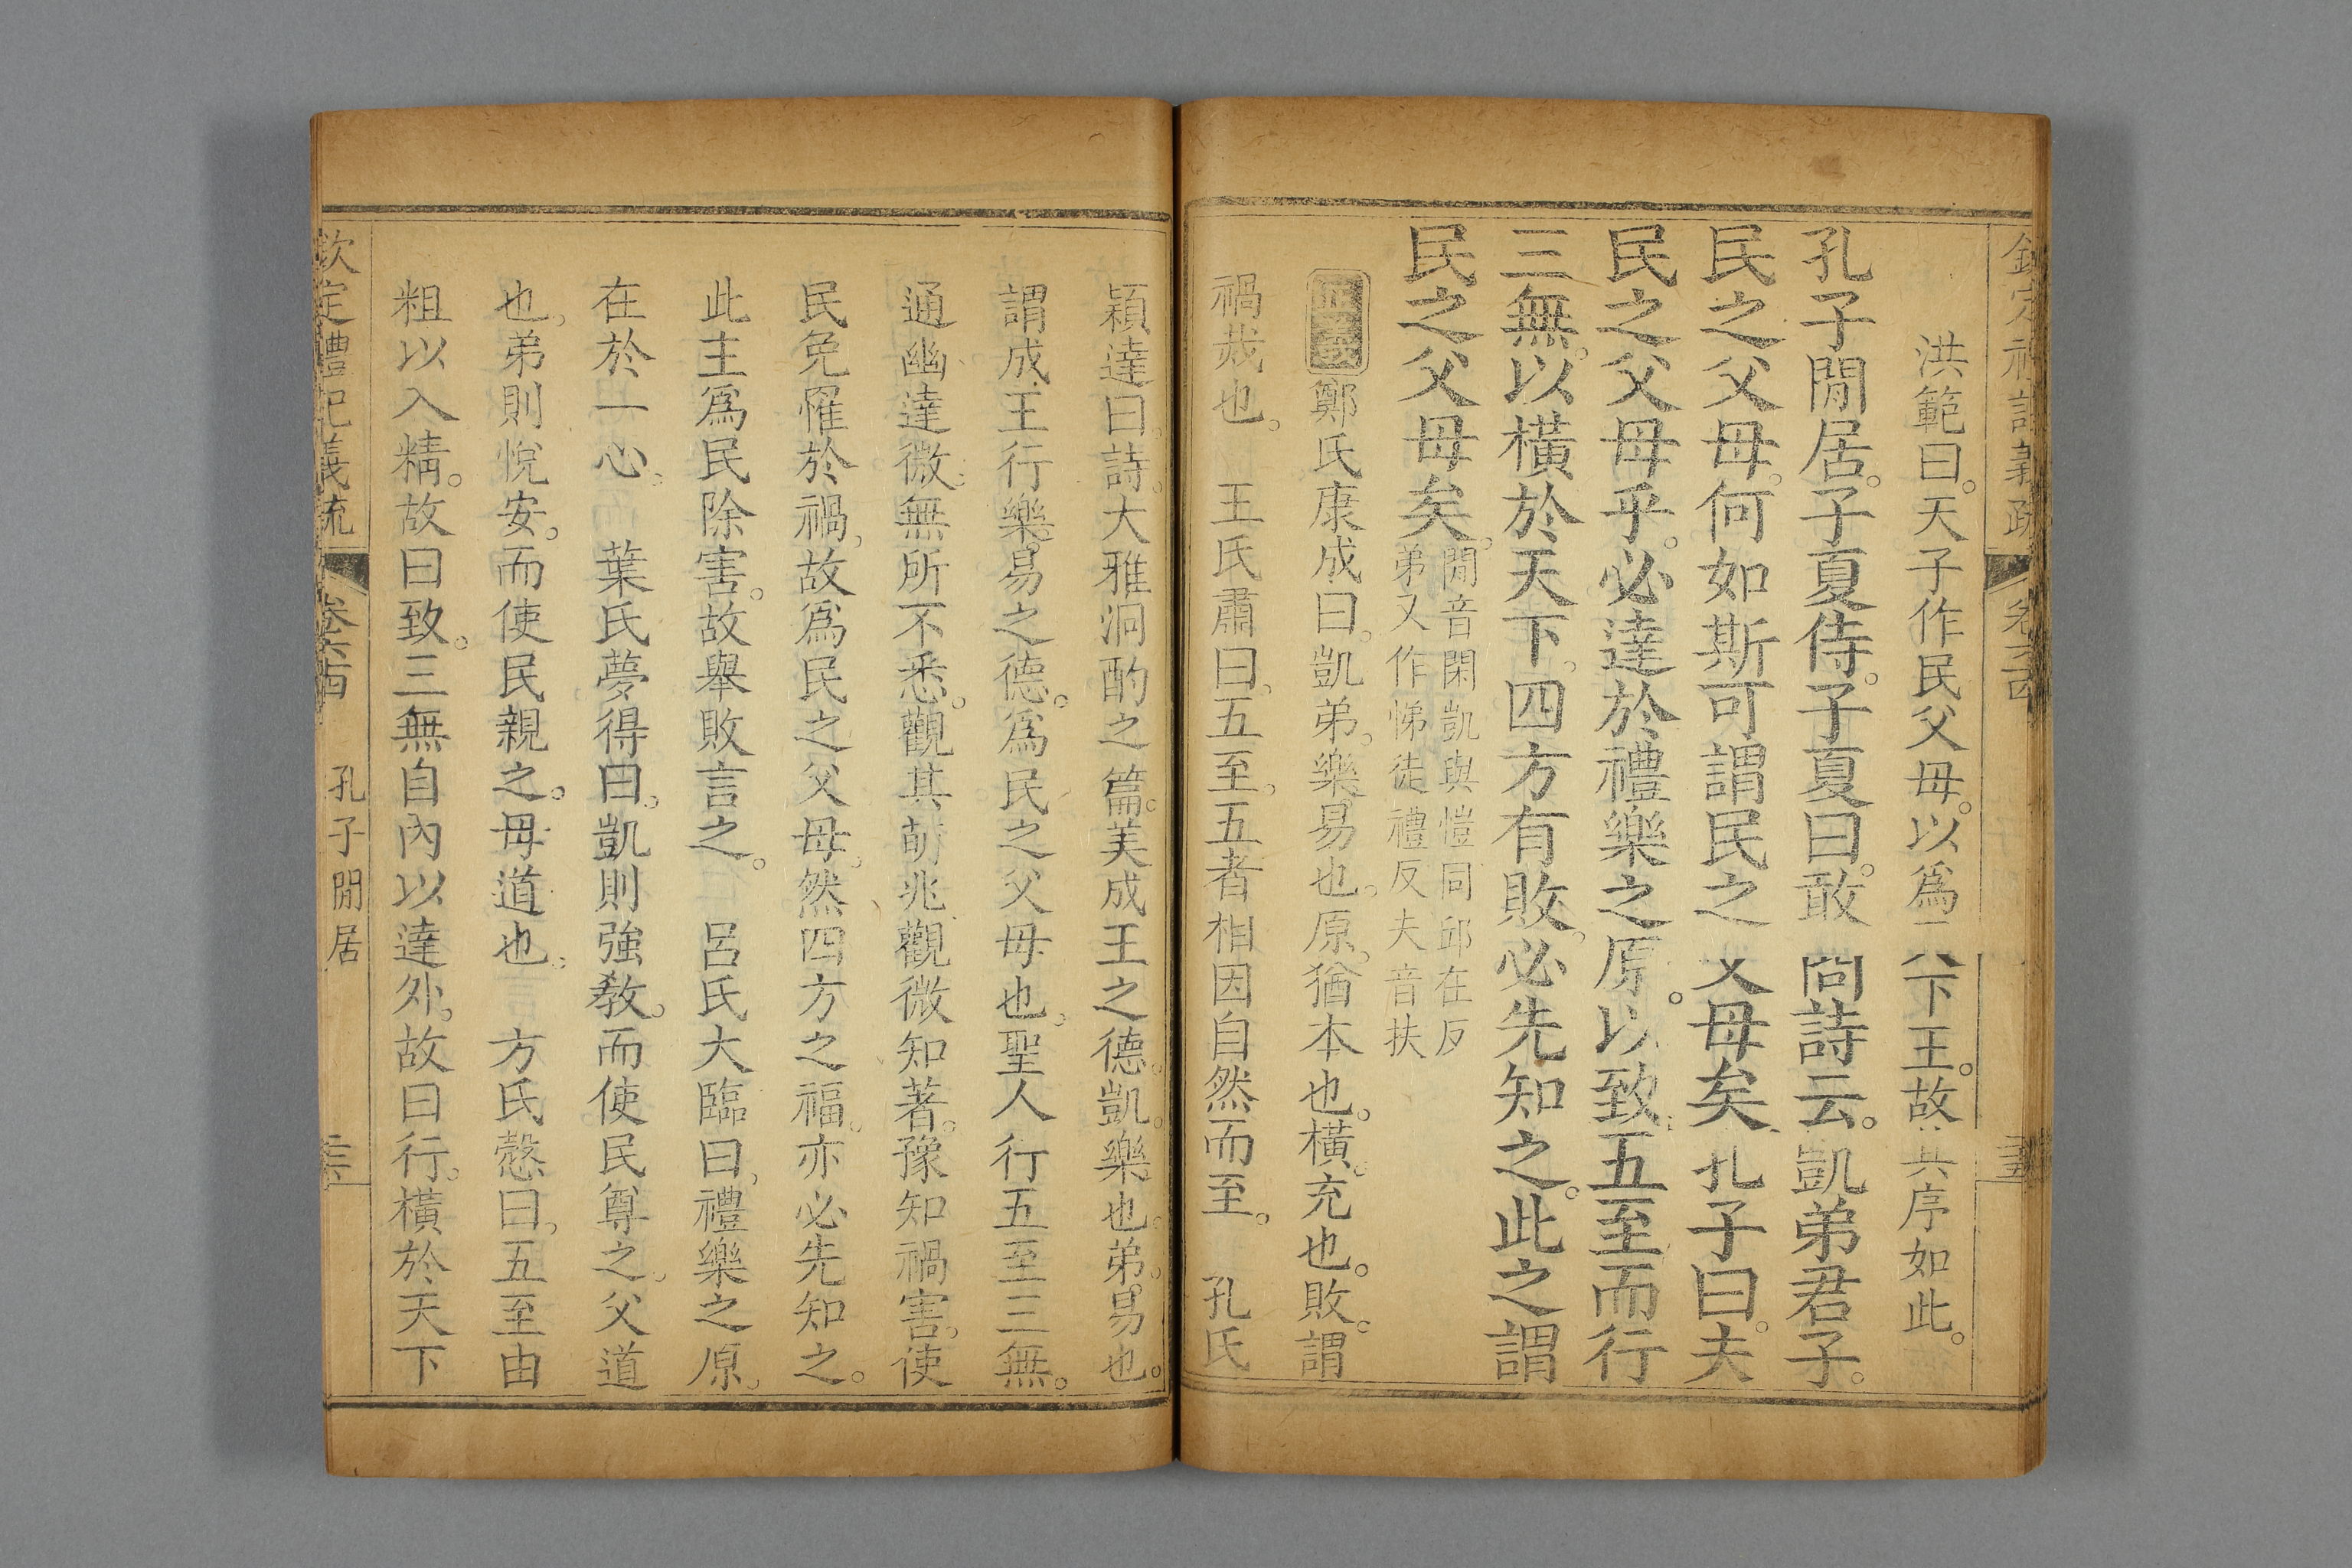 洪範曰。天子作民父母。以爲天下王。故其序如此。
孔子閒居。子夏侍。子夏曰。敢問詩云。凱弟君子。
民之父母。何如斯可謂民之父母矣。孔子曰。夫
民之父母乎。必達於禮樂之原。以致五至。而行
三無。以橫於天下。四方有敗。必先知之。此之謂
民之父母矣。
閒音閑凱與愷同邱在反
弟又作悌徒禮反夫音扶
正義鄭氏康成曰。凱弟。樂易也。原。猶本也。橫。充也。敗。謂
禍烖也。 王氏肅曰。五至。五者相因自然而至。 孔氏
穎達曰。詩。大雅泂酌之篇。美成王之德。凱。樂也。弟。易也。
謂成王行樂易之德。爲民之父母也。聖人行五至三無。
通幽達微。無所不悉。觀其萌兆。觀微知著。豫知禍害。使
民免罹於禍。故爲民之父母。然四方之福。亦必先知之。
此主爲民除害。故舉敗言之。 呂氏大臨曰。禮樂之原。
在於一心。 葉氏夢得曰。凱則強教。而使民尊之。父道
也。弟則悅安。而使民親之。母道也。 方氏慤曰。五至由
粗以入精。故曰致。三無自內以達外。故曰行。橫於天下
欽定禮記義疏 卷六十四 孔子閒居